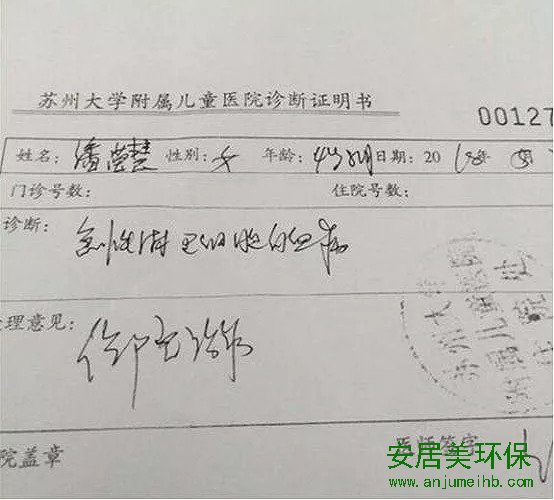 苏州大学附属儿童医院诊断证明书
00127
姓名：潘莹慧 性别：女 年龄：4岁 日期：2018年
门诊号数： 住院号数：
诊断： 急性淋巴细胞白血病
理意见： 住院治疗
苏州大学
附属儿童医院
院盖章 医师签字
安居美环保
www.anjumeihb.com